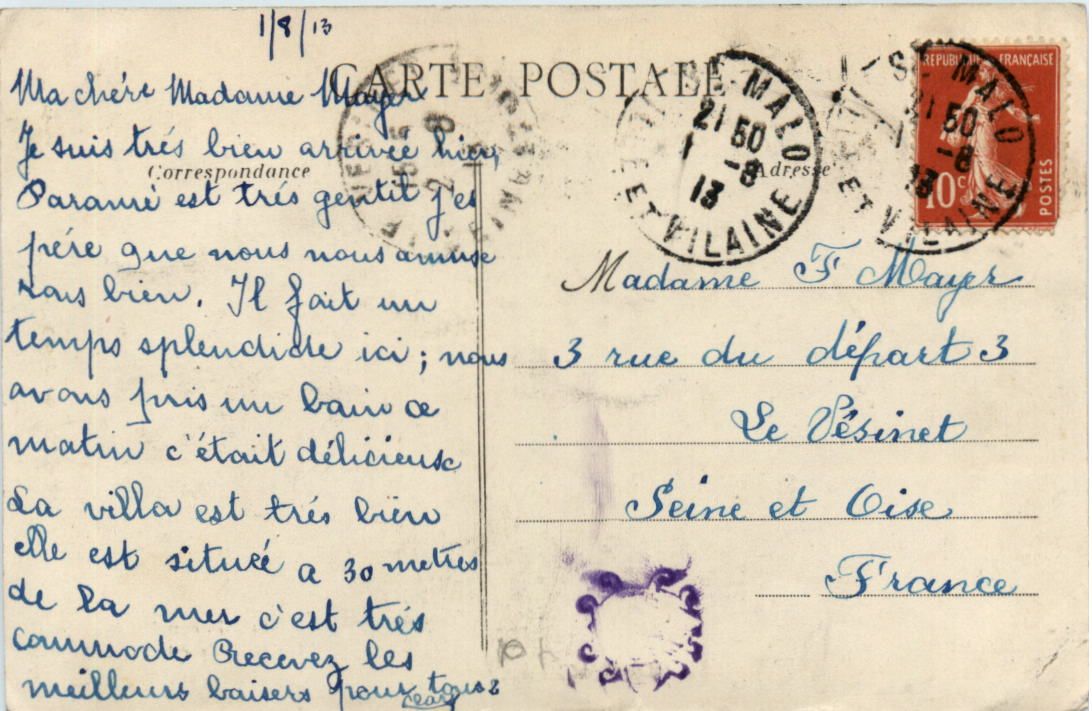 1/8/13
CARTE POSTALE
Correspondance
Adresse
Ma chére Madame Mayer
Je suis trés bien arrivée hier,
Paramé est trés gentil j'es
pére que nous nous amuse
rons bien. Il fait un
temps splendide ici; nous
avons pris un bain ce
matin c'était délicieuse
La villa est trés bien
elle est située a 30 metres
de la mer c'est trés
commode Recevez les
meilleurs baisers pour tous
Madame F Mayer
3 rue du départ 3
Le Vésinet
Seine et Oise
France
ST MALO
21 50
1 -8
13
ET VILAINE
ST MALO
21 50
1 -8
13
ET VILAINE
REPUBLIQUE FRANÇAISE
10c
POSTES